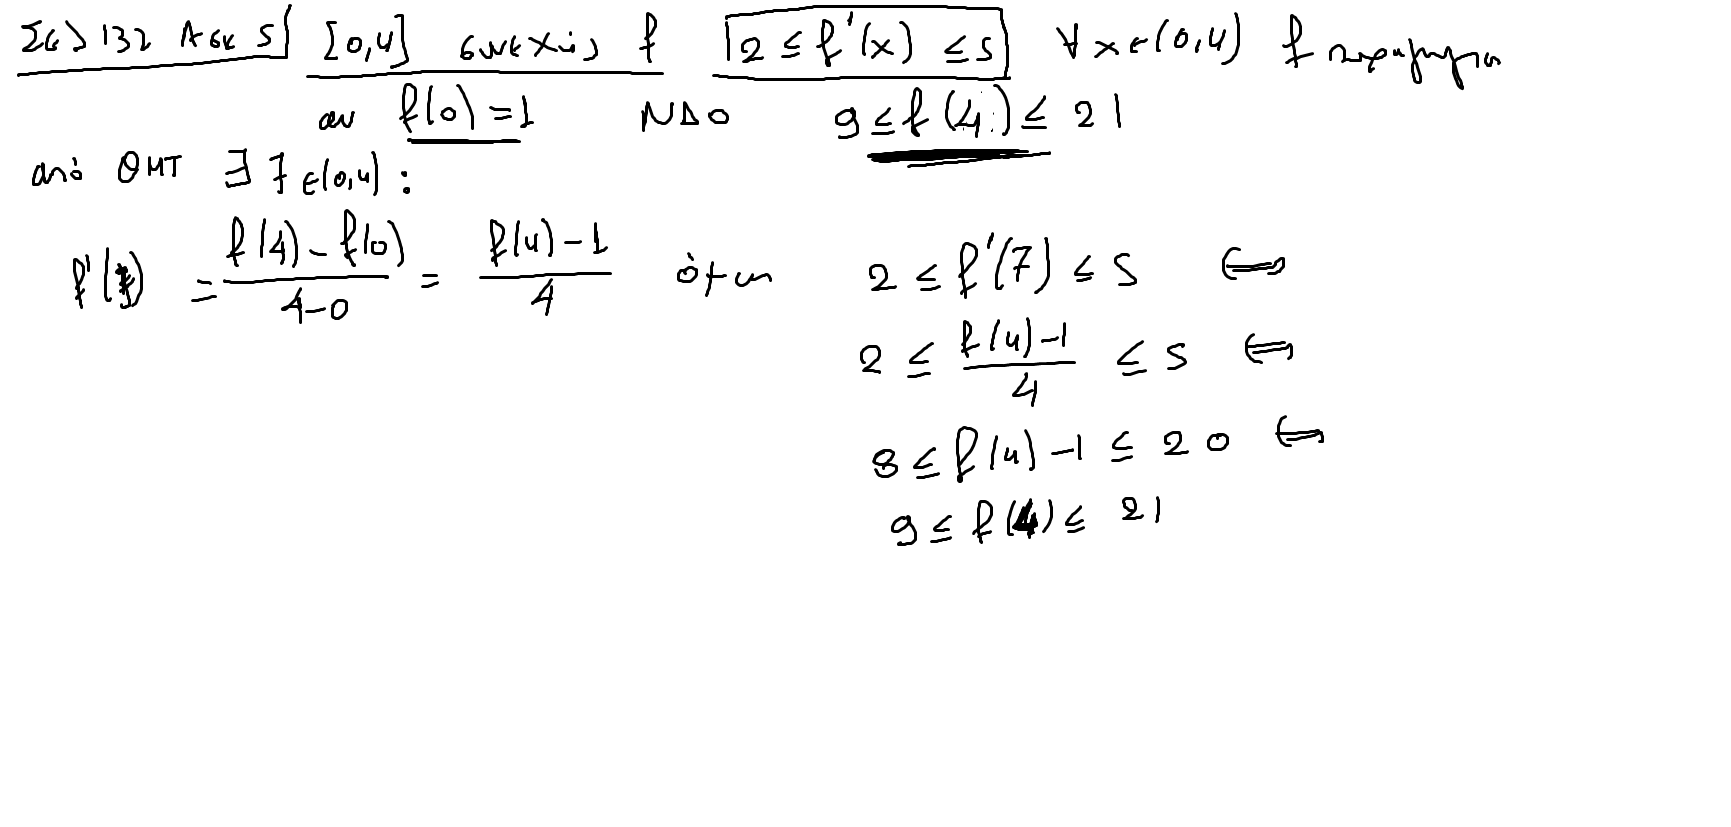 Σελ 132 Ασκ 5 [0,4] συνεχής f 2 ≤ f'(x) ≤ 5 ∀ x ∈ (0,4) f παραγ/μη
αν f(0) = 1 ΝΔΟ 9 ≤ f(4) ≤ 21
από ΘΜΤ ∃ ξ ∈ (0,4) :
f'(ξ) = \frac{f(4) - f(0)}{4-0} = \frac{f(4) - 1}{4} όμως 2 ≤ f'(ξ) ≤ 5 ⟺
2 ≤ \frac{f(4) - 1}{4} ≤ 5 ⟺
8 ≤ f(4) - 1 ≤ 20 ⟺
9 ≤ f(4) ≤ 21